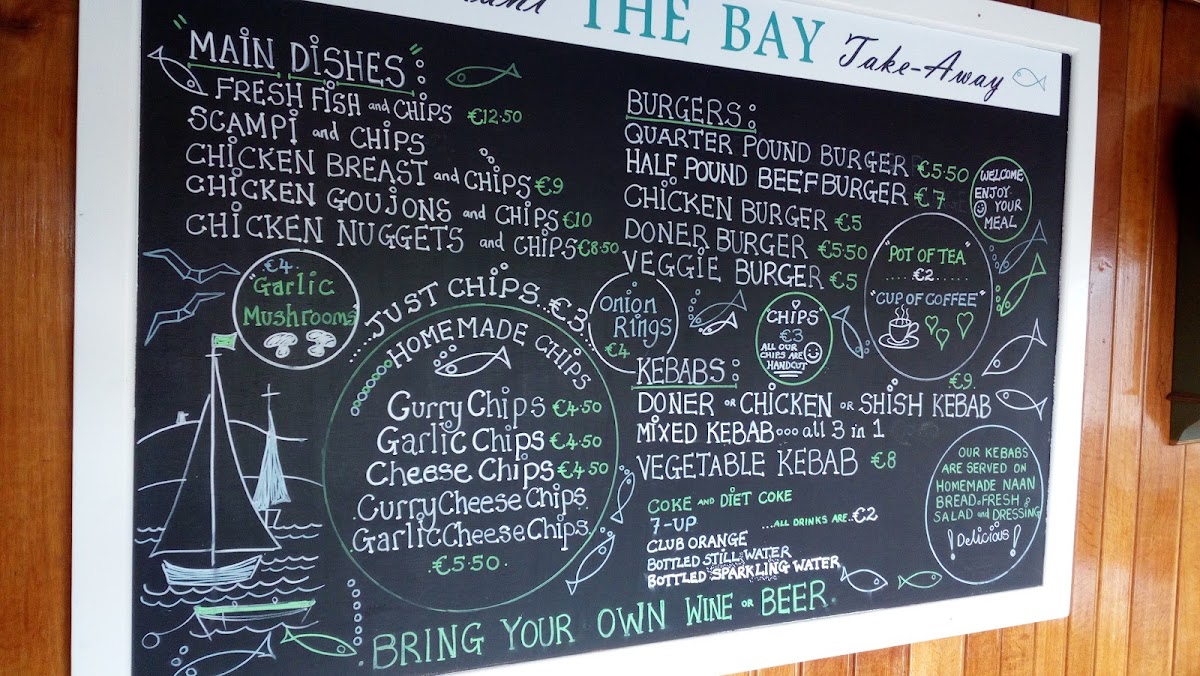 THE BAY
Take-Away
"MAIN DISHES":
FRESH FISH and CHIPS €12.50
SCAMPI and CHIPS
CHICKEN BREAST and CHIPS €9
CHICKEN GOUJONS and CHIPS €10
CHICKEN NUGGETS and CHIPS €8.50
€4.
"Garlic
Mushrooms"
.....JUST CHIPS...€3...
HOMEMADE CHIPS
Curry Chips €4.50
Garlic Chips €4.50
Cheese Chips €4.50
.Curry Cheese Chips.
.Garlic Cheese Chips.
.€5.50.
BURGERS:
QUARTER POUND BURGER €5.50
HALF POUND BEEFBURGER €7
CHICKEN BURGER €5
DONER BURGER €5.50
VEGGIE BURGER €5
WELCOME
ENJOY
YOUR
MEAL
"POT OF TEA"
.....€2.....
"CUP OF COFFEE"
Onion
Rings
€4
"CHIPS"
€3
ALL OUR
CHIPS ARE
HANDCUT
KEBABS:
€9.
DONER OR CHICKEN OR SHISH KEBAB
MIXED KEBAB ooo all 3 in 1
VEGETABLE KEBAB €8
OUR KEBABS
ARE SERVED ON
HOMEMADE NAAN
BREAD. FRESH
SALAD and DRESSING
!Delicious!
COKE AND DIET COKE
7-UP ...ALL DRINKS ARE..€2
CLUB ORANGE
BOTTLED STILL WATER
BOTTLED SPARKLING WATER
BRING YOUR OWN WINE OR BEER.